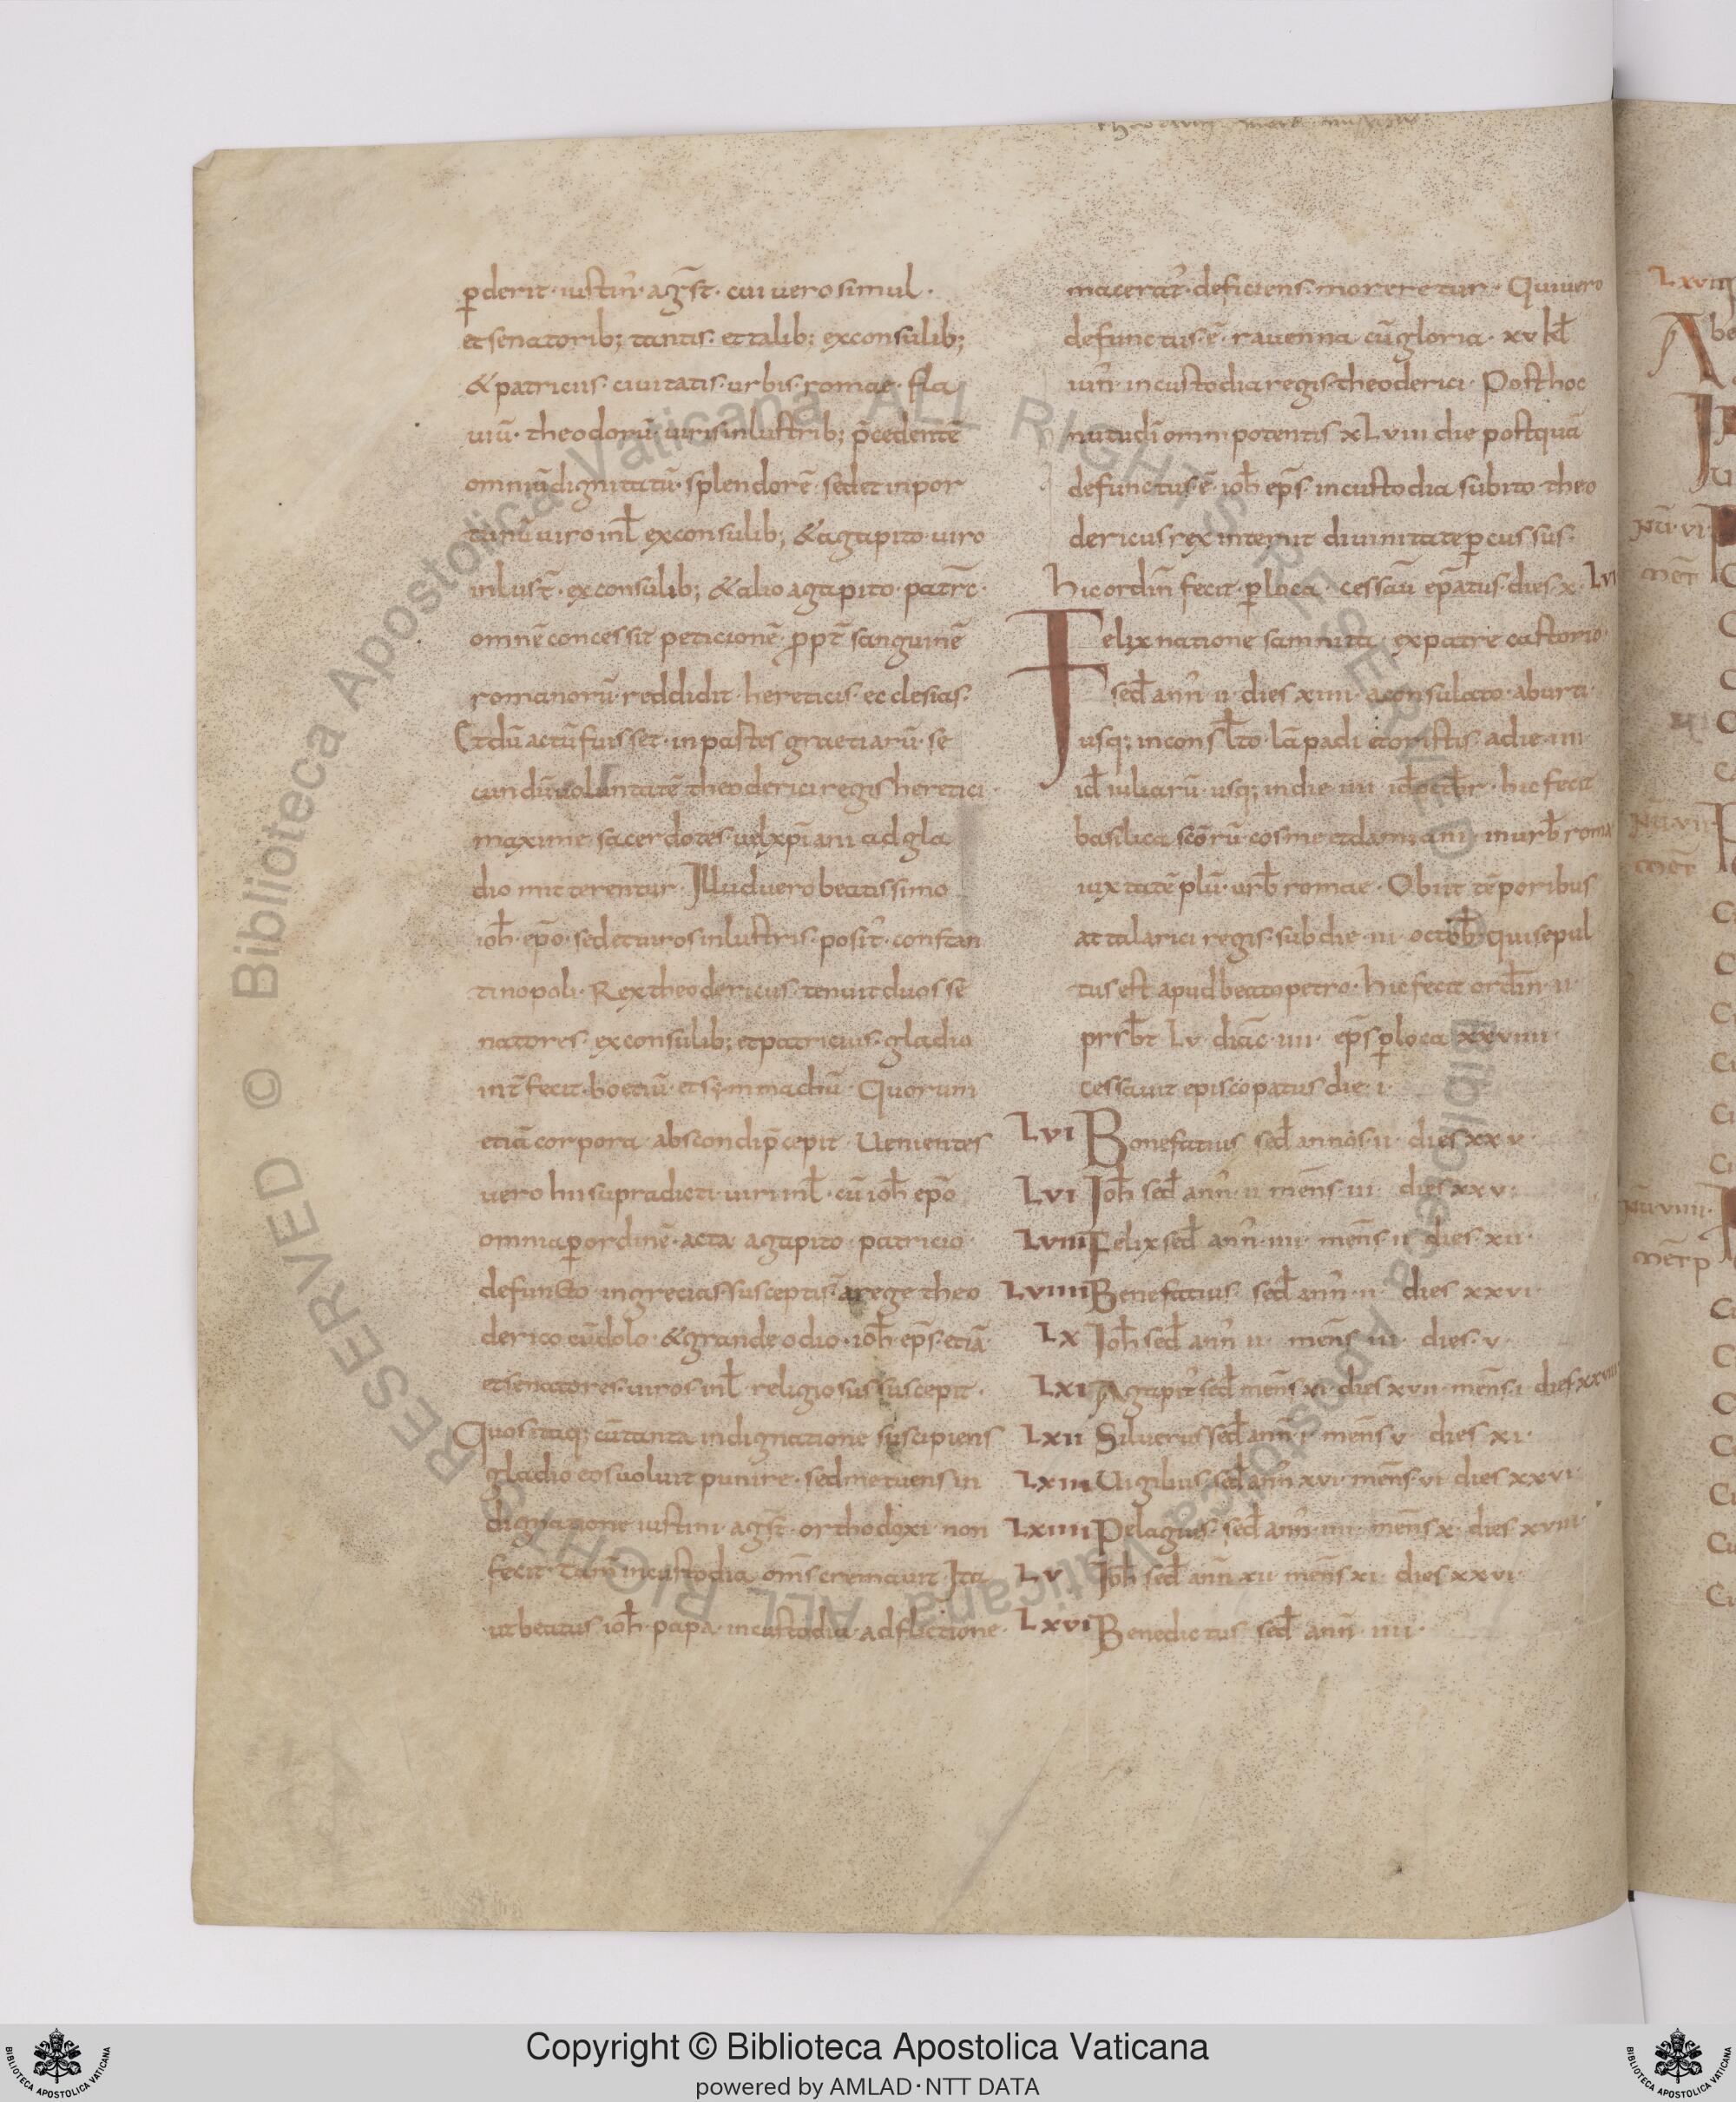 ꝑderit · iustin̄ · ag̅st · cui uero simul ·
et senatorib; tantis · et talib; exconsulib;
& patricius · ciuitatis · urbis · romae · fla
uiū · theodorū · uiris inlustrib; p̄cedentē
omniū dignitatū · splendorē · sed et inpor
tunū uiro inl̄ exconsulib; & agapito · uiro
inlust̄ · exconsulib; & alio agapito · patr̄c ·
omnē concessit peticionē · ꝓpt̄ sanguinē
romanorū · reddidit · hereticis · ecclesias ·
Et dū actū fuisset · in partes graetiarū · se
cundū uoluntatē theoderici regis heretici ·
maxime · sacerdotes · uel xp̄iani ad gla
dio mitterentur · Illud uero beatissimo
ioh̄ · ep̄o · sed et uiros inlustris · posit̄ · constan
tinopoli · Rex theodericus · tenuit duos se
natores · exconsulib; et patricius · gladio
int̄fecit · boetiū · et symmachiū · Quorum
etiā corpora · abscondi p̄cepit · Uenientes
uero hii supradicti · uiri inl̄ · cū ioh̄ ep̄o
omnia ꝑ ordinē · acta · agapito · patricio ·
defuncto · in grecias · susceptis · a rege theo
derico cū dolo · & grande odio · ioh̄ · ep̄s · etiā ·
et senatores · uiros inl̄ · religiosus suscepit ·
Quos itaq; cū tanta indignatione suscipiens
gladio eos uoluit punire · sed metuens in
dignatione iustini · ag̅st · orthodoxi · non
fecit · tam̄ in custodia om̄s cremauit · Ita
ut beatus ioh̄ · papa · in custodia · adflictione ·
macerat̄ · deficiens · moreretur · Qui uero
defunctus · ē · rauenna cū gloria · xv kl̄
iun̄ · in custodia regis · theoderici · Post hoc
nutu dī omnipotentis xLviii die postquā
defunctus · ē · ioh̄ ep̄s · in custodia subito · theo
dericus rex interiit diuinitate ꝑcussus ·
hic ordin̄ fecit · ꝑ loca · cessau̅ ep̄atus · dies · x · Lvi
Felix natione samnita · ex patre castorio ·
sed̄ ann̄ · ii · dies xiiii · a consulato · aburti ·
usq; in consl̄to · lāpadi et oristis · a die · iiii
id̄ iuliarū · usq; in die · iiii · id̄ octb̄r · hic fecit
basilica sc̄orū · cosme et damiani · in urb̄ roma
iuxta tēplū · urb̄ romae · Obiit tēporibus
attalarici regis · sub die · iii · octob̄ · qui sepul
tus est apud beato petro · hic fecit ordin̄ · ii ·
prsb̄t Lv · diac̄ · iiii · ep̄s ꝑ loca xxviiii ·
cessauit episcopatus die · i ·
Lvi Bonefatius sed̄ annos · ii · dies xxv ·
Lvi Ioh̄ sed̄ ann̄ · ii men̄s · iii · dies xxv ·
Lviii Felix sed̄ ann̄ · iiii · men̄s · ii · dies · xii ·
Lviiii Benefatius sed̄ ann̄ · ii · dies xxvi ·
Lx Ioh̄ sed̄ ann̄ ii · men̄s · iii · dies · v ·
Lxi Agapit̄ sed̄ men̄s · xi · dies xvii · men̄s · i · dies
Lxii Siluerius sed̄ ann̄ · i · men̄s v · dies xi ·
Lxiii Uigilius · sed̄ ann̄ xvi · men̄s · vi · dies xxvi ·
Lxiiii Pelagius · sed̄ ann̄ · iiii · men̄s x · dies xviii ·
Lv Ioh̄ sed̄ ann̄ xii · men̄s xi · dies xxvi ·
Lxvi Benedictus sed̄ ann̄ · iiii ·
© Biblioteca Apostolica Vaticana ALL RIGHTS RESERVED
Copyright © Biblioteca Apostolica Vaticana
powered by AMLAD·NTT DATA
BIBLIOTECA APOSTOLICA VATICANA
BIBLIOTECA APOSTOLICA VATICANA